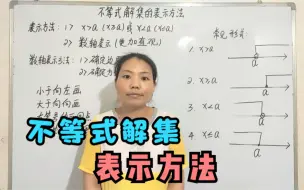 不等式解集的表示方法
表示方法: 1> x>a (x≥a) 或 x<a (x≤a)
2> 数轴表示 (更加直观)
数轴表示方法: 1> 确定边
2> 确定方
小于向左画
大于向右画
常见形式:
1 x>a
a
2 x≥a
a
3 x<a
a
4 x≤a
a
不等式解集
表示方法